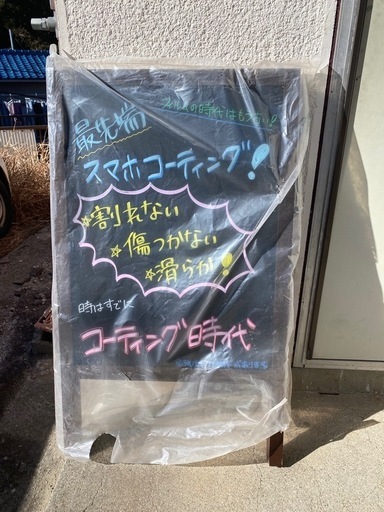 最先端
フィルムの時代はもう古い!!
スマホコーティング!
☆割れない
☆傷つかない
☆滑らか!
時はすでに
コーティング時代